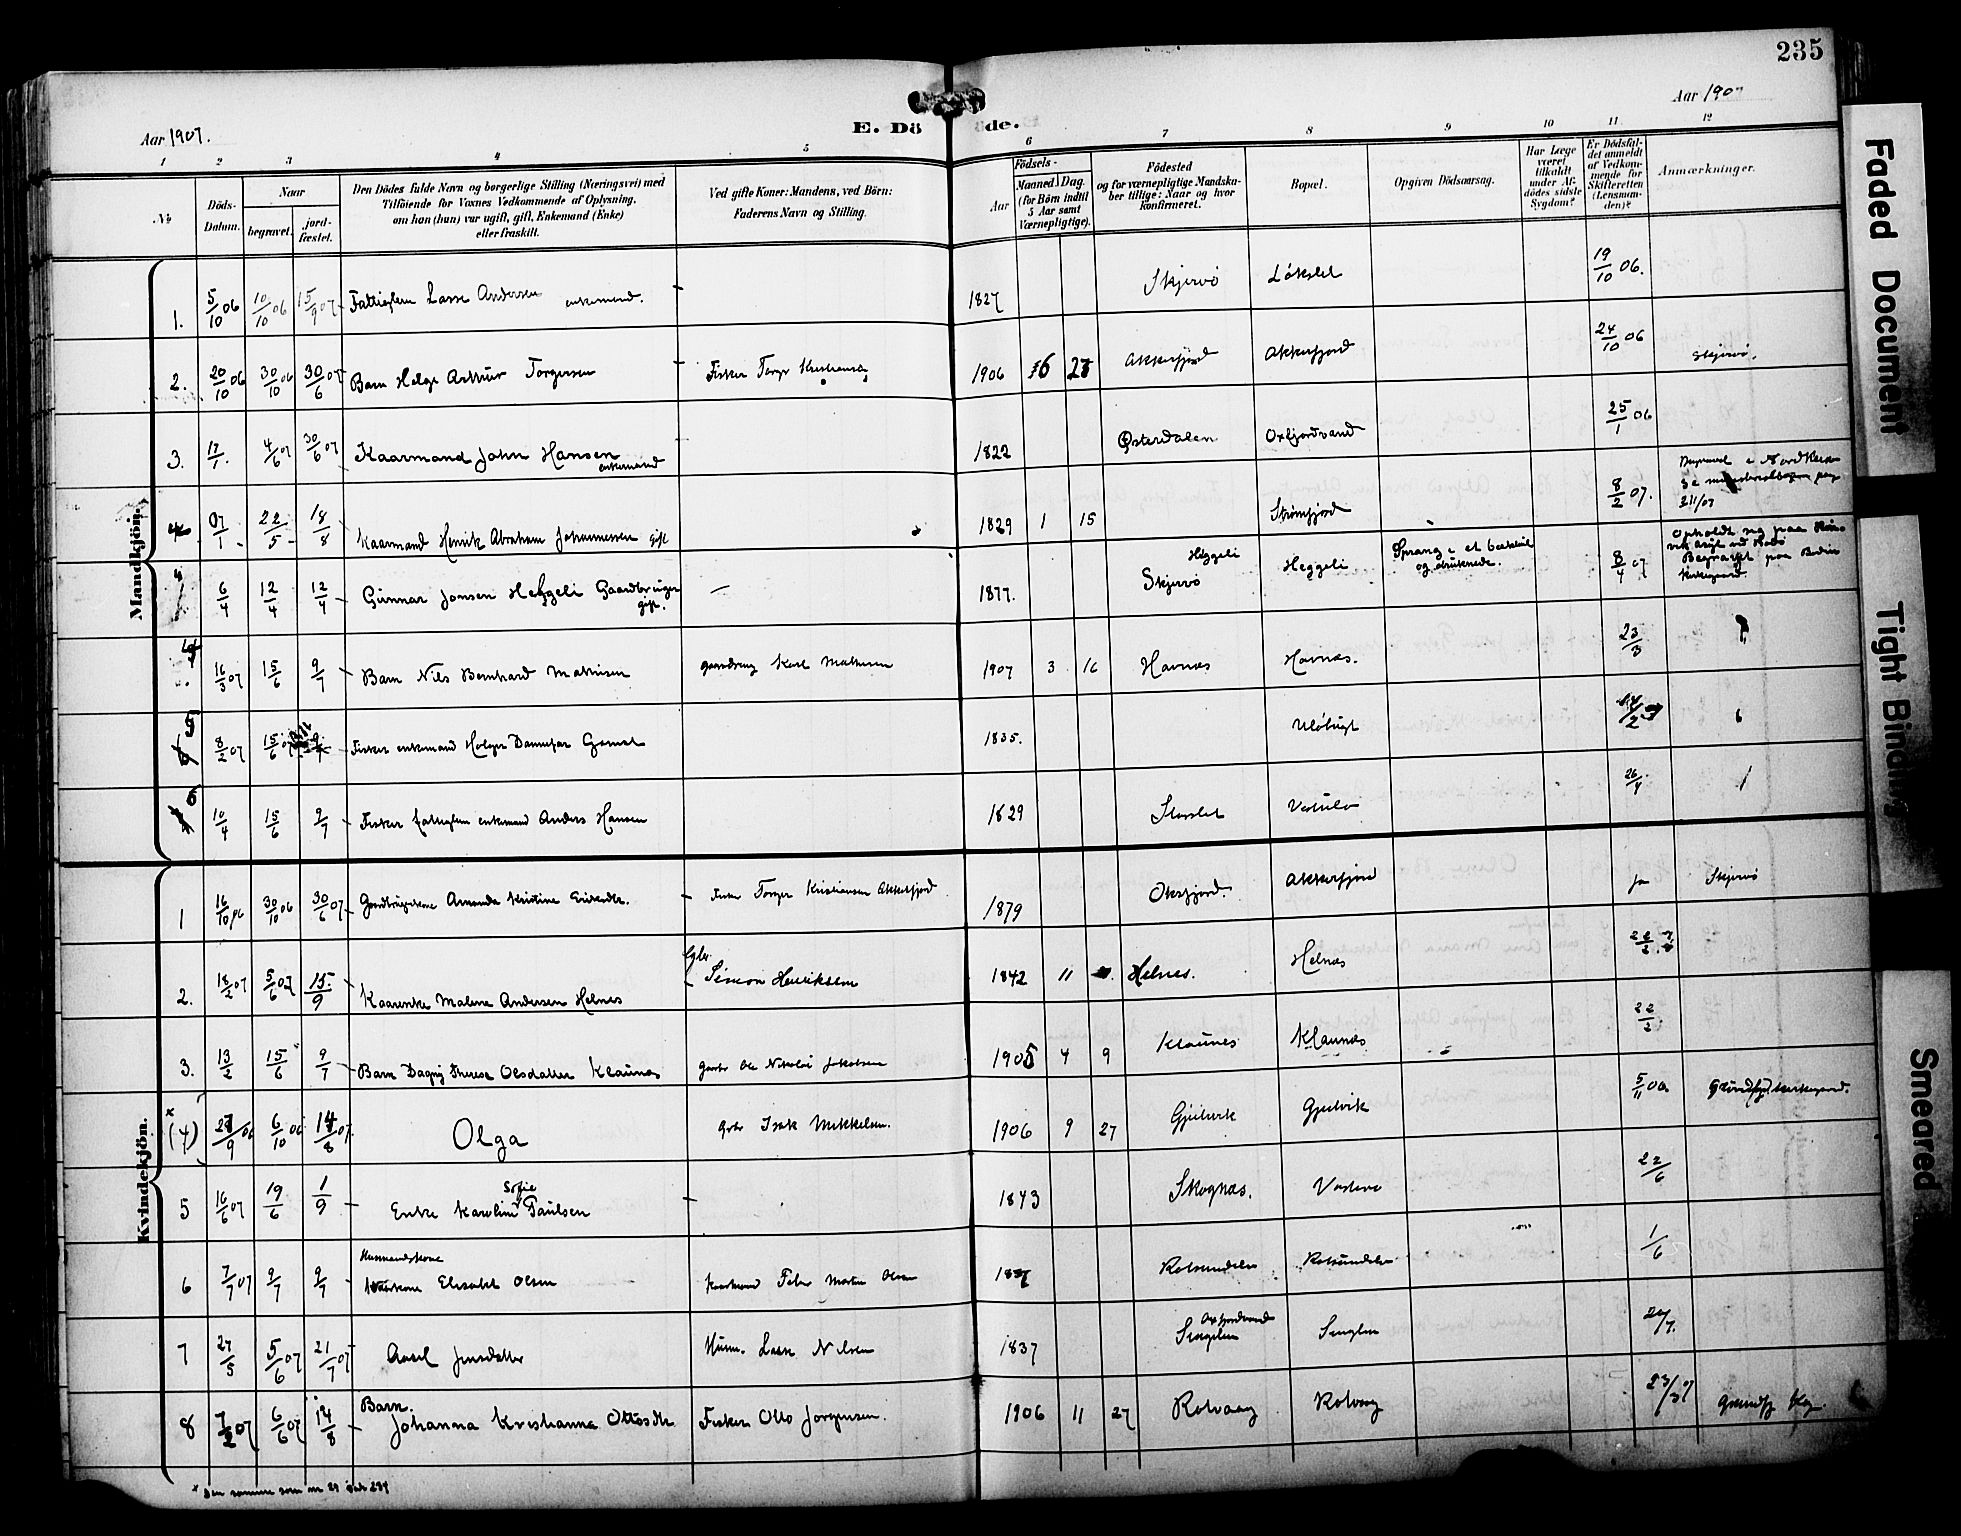 235
Aar 1907.
E. Dö
de.
Aar 1907
1 2 3 4 5 6 7 8 9 10 11 12
No
Döds-Datum.
Naar
begravet.
jord-fæstet.
Den Dödes fulde Navn og borgerlige Stilling (Næringsvei) med
Tilföiende for Voxnes Vedkommende af Oplysning,
om han (hun) var ugift, gift, Enkemand (Enke)
eller fraskilt.
Ved gifte Koner: Mandens, ved Börn:
Faderens Navn og Stilling.
Födsels-
Aar
Maaned. Dag.
(for Börn indtil
5 Aar samt
Værnepligtige).
Födested
og for værnepligtige Mandska-
ber tillige: Naar og hvor
konfirmeret.
Bopæl.
Opgiven Dödsaarsag.
Har Læge
været
tilkaldt
under Af-
dödes sidste
Sygdom?
Er Dödsfal-
det anmeldt
af Vedkom-
mende for
Skifteretten
(Lensman-
den)?
Anmærkninger.
Mandkjön.
1. 5/10 06 10/10 06 15/9 07 Fattiglem Lasse Andersen enkemand. 1827 Skjervö Lökslet 19/10 06.
2. 20/10 06 30/10 06 30/6 07 Barn Helge Arthur Torgersen Fisker Torger Kristiansen 1906 6 27 Akkerfjord Akkerfjord 24/10 06 Skjervö.
3. 17/1. 4/6 07 30/6 07 Kaarmand John Hansen enkemand 1822 Østerdalen Oxfjordvand 25/1 06
4 07/1 22/5 18/8 Kaarmand Henrik Abraham Johannessen gift 1829 1 15 Strömfjord 8/2 07. Begravet i Nordkirken
Se ministerialbogen pag
211/07
6/4 12/4 12/4 Gunnar Jonsen Heggeli Gaardbruger gift. 1877. Heggeli Skjervö Heggeli Sprang i et
og druknede. 8/4 07 Opholdt sig paa
asyl ved Bodö
Begravet paa Bodin
Kirkegaard
4 16/3 07 15/6 9/7 Barn Nils Bernhard Mathisen Karl Mathisen 1907 3 16 Havnæs Havnæs. 23/3
5 8/2 07 15/6 07 9/7 Fisker enkemand Holger Dannefær Gamst 1835. Ulöbugt 14/2
6 10/4 15/6 9/7 Fisker fattiglem enkemand Anders Hansen 1829 Storslet 26/4
Kvindekjön.
1 16/10 06 30/10 06 30/6 07 Gaardbrugerkone Amanda Kristine Eriksdtr. Fisker Torger Kristiansen Akkerfjord 1879 Oksfjord. Akkerfjord ja Skjervö
2. 18/2 07 5/6 07 15/9 Kaarenke Malene Andersen Helnes Gbr. Simon Henriksen 1842 11 Helnes. Helnæs 22/2
3. 13/2 15/6 9/7 Barn Dagny Therese Olsdatter Klaunæs Gaardbr Ole Nikolai Jakobsen 1905 4 9 Klaunes Klaunæs 22/2
x (4) 27/9 06 6/10 06 14/8 07. Olga Gbr Isak Mikkelsen. 1906 9 27 Gjeilvik Gjeilvik 5/11 06 Grundfj. kirkegaard.
5 16/6 07 19/6 1/9 Enke Karoline Sofie Paulsen 1843 Skognæs. 22/6
6 7/7 07 9/7 9/7 Husmandskone Elisabet Olsen Kaarmand Peder Morten Olsen Rotsundelv Rotsundelv 1/6
7 27/5 5/6 07 21/7 07 Aasel Jensdatter Husm. Lasse Nilsen 1837 Oxfjordvand Sengelen Senglen 24/7.
8 7/2 07 6/6 07 14/8 Barn. Johanna Kristianna Ottosdtr Fisker Otto Jörgensen. 1906 11 27 Rotvaag Rotvaag 23/3 07 Grundfj Kg.
x Den samme som nr 29 side 234
Faded Document
Tight Binding
Smeared